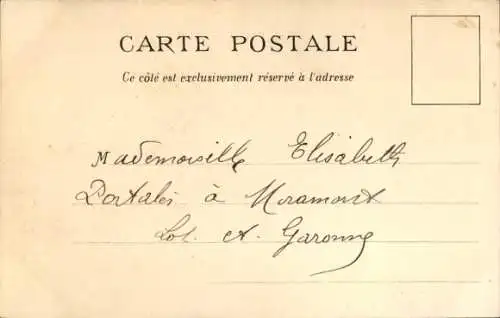 CARTE POSTALE
Ce côté est exclusivement réservé à l'adresse
Mademoiselle Elisabeth
Portalès à Miramont
Lot et Garonne